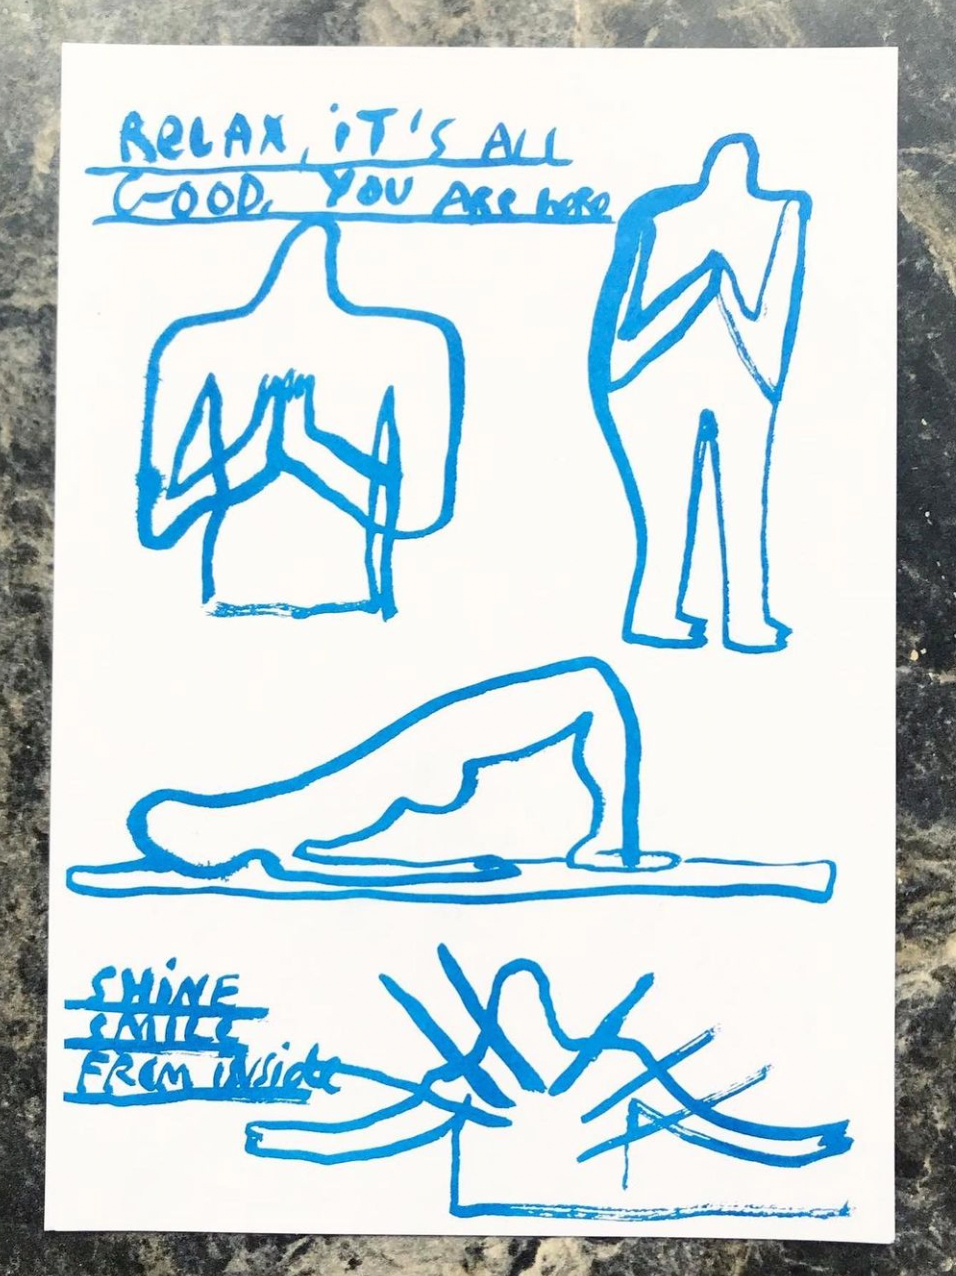 RELAX, iT'S ALL
GOOD. YOU ARE
SHiNE
SMILE
FROM iNSide